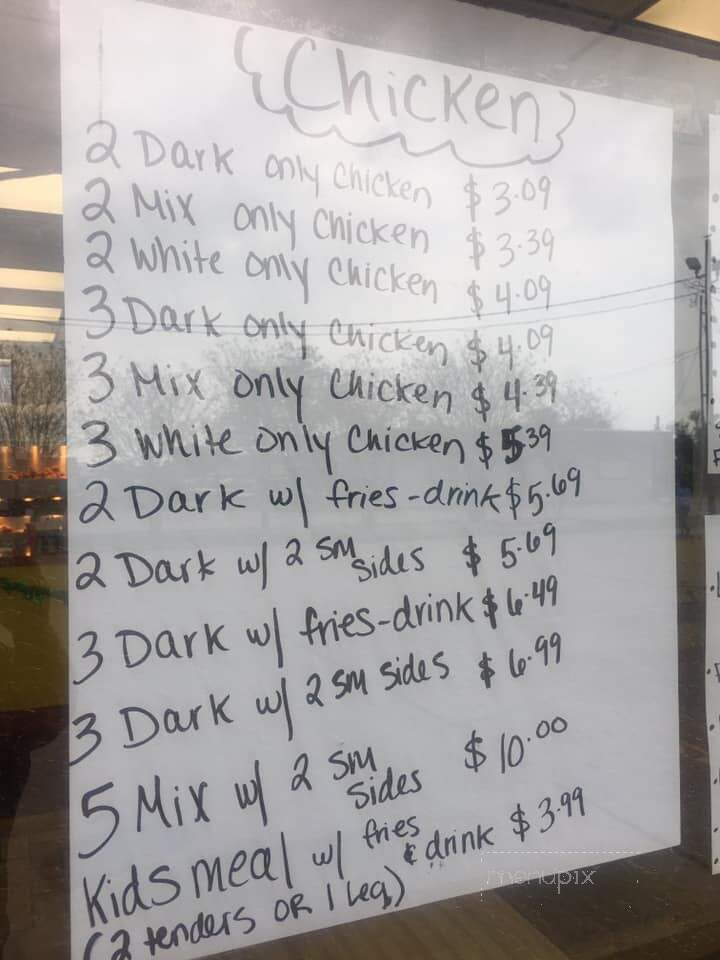 {Chicken}
2 Dark only chicken $3.09
2 Mix only Chicken $3.39
2 White only Chicken $4.09
3 Dark only Chicken $4.09
3 Mix only Chicken $4.39
3 White only Chicken $5.39
2 Dark w/ fries-drink $5.69
2 Dark w/ 2 SM sides $5.69
3 Dark w/ fries-drink $6.49
3 Dark w/ 2 SM Sides $6.99
5 Mix w/ 2 SM Sides $10.00
Kids meal w/ fries & drink $3.99
(2 tenders OR 1 Leg)
menupix